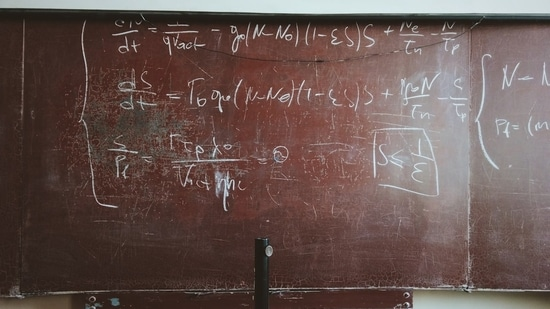 dN/dt = I/qVact - g₀(N-N₀)(1-εS)S + Ne/τn - N/τp
dS/dt = Γ₀g₀(N-N₀)(1-εS)S + N/τn - S/τp
S/Pf = Γτpλ₀/Vact ηhc = S ≤ 1/ε
N -
Pf = (m